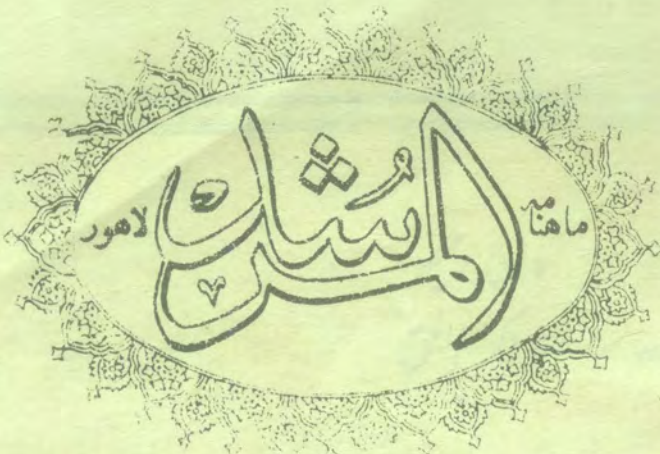 ماهنامہ
المُرشد
لاهور